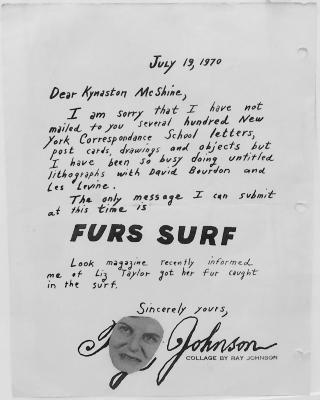 July 19, 1970
Dear Kynaston McShine,
I am sorry that I have not
mailed to you several hundred New
York Correspondance School letters,
post cards, drawings and objects but
I have been so busy doing untitled
lithographs with David Bourdon and
Les Levine.
The only message I can submit
at this time is
FURS SURF
Look magazine recently informed
me of Liz Taylor got her fur caught
in the surf.
Sincerely yours,
Johnson
COLLAGE BY RAY JOHNSON